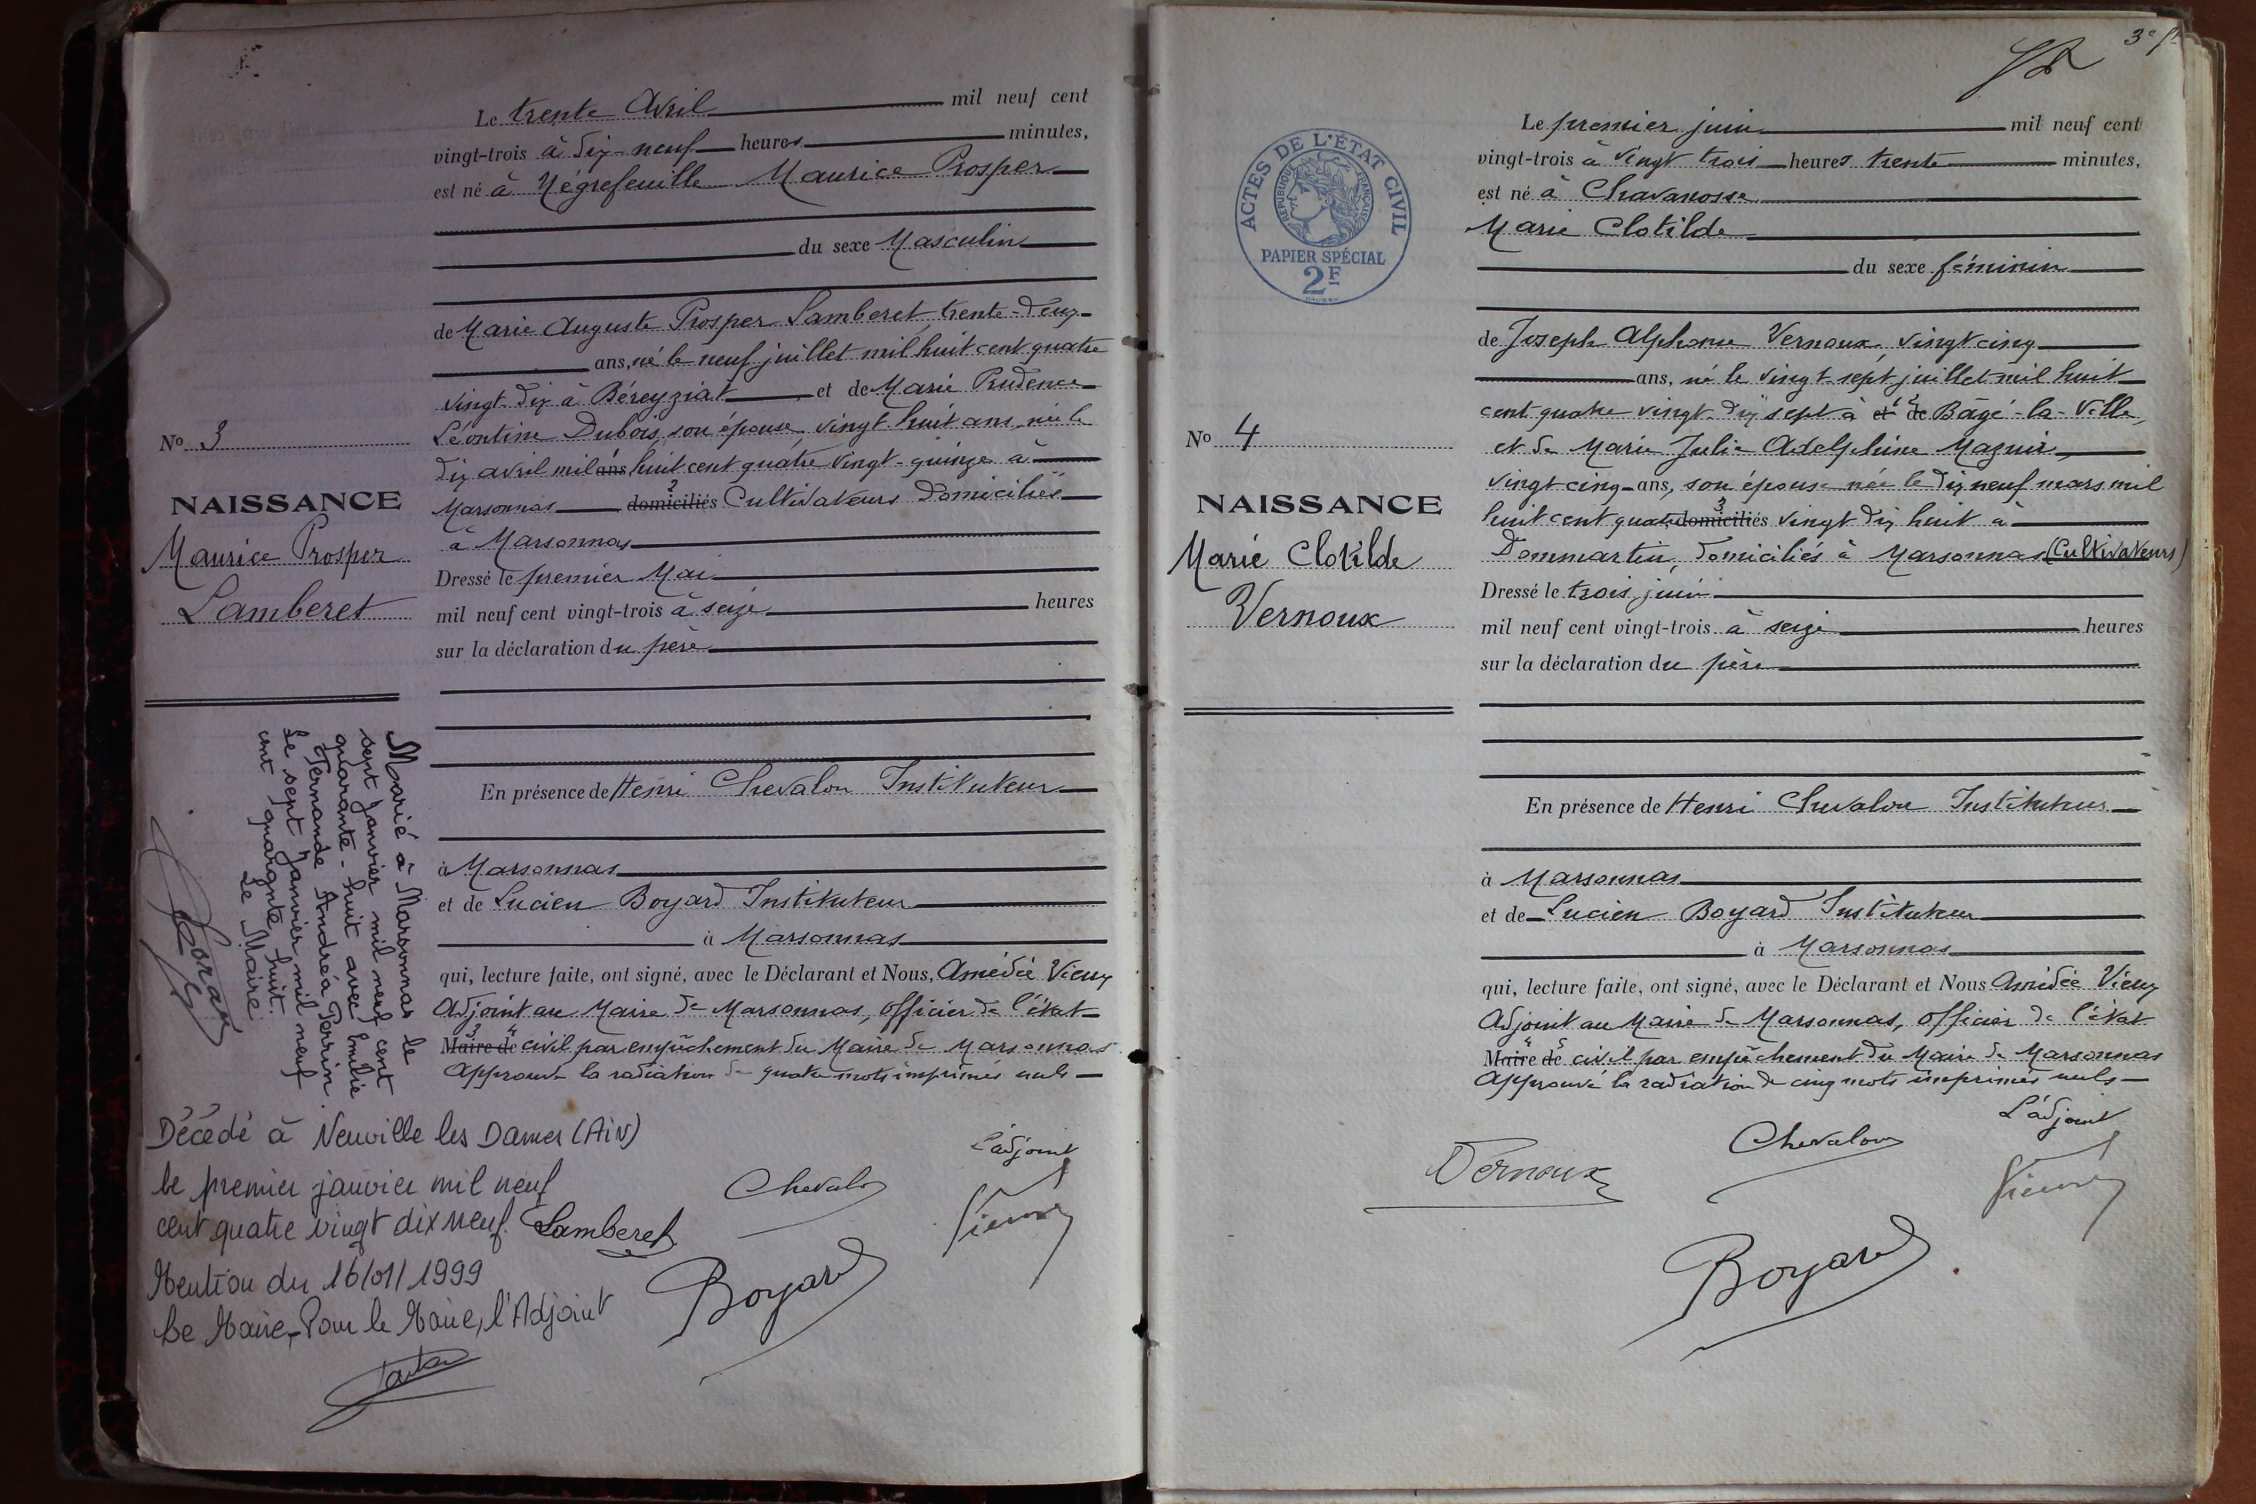 Le trente Avril mil neuf cent
vingt-trois à dix-neuf heures minutes,
est né à Négrefeuille Maurice Prosper
du sexe Masculin
de Marie Auguste Prosper Lamberet, trente-deux
ans, né le neuf juillet mil huit cent quatre
vingt-dix à Béreyziat et de Marie Prudence
Léontine Dubois, son épouse, vingt-huit ans, née le
dix avril mil ans huit cent quatre vingt-quinze à
Marsonnas domiciliés Cultivateurs domiciliés
à Marsonnas
Dressé le premier Mai
mil neuf cent vingt-trois à seize heures
sur la déclaration du père
En présence de Henri Chevalon Instituteur
à Marsonnas
et de Lucien Boyard Instituteur
à Marsonnas
qui, lecture faite, ont signé, avec le Déclarant et Nous, Amédée Vieux
Adjoint au Maire de Marsonnas, officier de l'état
Maire de civil par empêchement du Maire de Marsonnas
Approuvé la radiation de quatre mots imprimés nuls
L'adjoint
Chevalon
Vieux
Lamberet
Boyard
No 3
NAISSANCE
Maurice Prosper
Lamberet
Marié à Marsonnas le
sept janvier mil neuf cent
quarante-huit avec Emilie
Fernande Andréa Perrin.
Le sept janvier mil neuf
cent quarante huit.
Le Maire
Décédé à Neuville les Dames (Ain)
le premier janvier mil neuf
cent quatre vingt dix neuf.
Mention du 16/01/1999
Le Maire, Pour le Maire, l'Adjoint
3e
ACTES DE L'ÉTAT CIVIL
RÉPUBLIQUE FRANÇAISE
PAPIER SPÉCIAL
2F
No 4
NAISSANCE
Marie Clotilde
Vernoux
Le premier juin mil neuf cent
vingt-trois à vingt trois heures trente minutes,
est né à Chavanosse
Marie Clotilde
du sexe féminin
de Joseph Alphonse Vernoux, vingt cinq
ans, né le vingt-sept juillet mil huit
cent quatre vingt-dix sept à et de Bâgé-la-Ville,
et de Marie Julie Adelphine Magnin,
vingt cinq ans, son épouse née le dix neuf mars mil
huit cent quatre domiciliés vingt dix huit à
Dommartin, domiciliés à Marsonnas (Cultivateurs)
Dressé le trois juin
mil neuf cent vingt-trois à seize heures
sur la déclaration du père
En présence de Henri Chevalon Instituteur
à Marsonnas
et de Lucien Boyard Instituteur
à Marsonnas
qui, lecture faite, ont signé, avec le Déclarant et Nous Amédée Vieux
Adjoint au Maire de Marsonnas, officier de l'état
Maire de civil par empêchement du Maire de Marsonnas
Approuvé la radiation de cinq mots imprimés nuls
L'adjoint
Chevalon
Vernoux
Vieux
Boyard